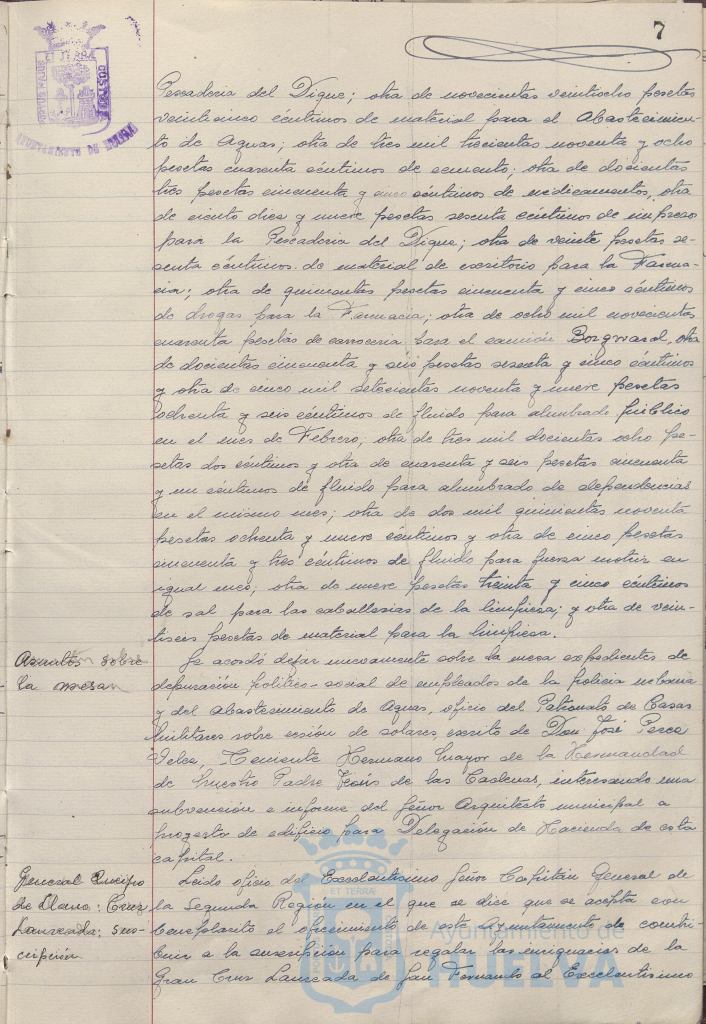 7
PORTUS MARIS ET TERRÆ CUSTODIA
AYUNTAMIENTO DE HUELVA
Pescaderia del Dique; otra de novecientas veintiocho pesetas
veinticinco céntimos de material para el Abastecimien-
to de Aguas; otra de tres mil trecientas noventa y ocho
pesetas cuarenta céntimos de cemento; otra de docientas
tres pesetas cincuenta y cinco céntimos de medicamentos, otra
de ciento diez y nueve pesetas sesenta céntimos de impreso
para la Pescaderia del Dique; otra de veinte pesetas se-
senta céntimos de material de escritorio para la Farma-
cia; otra de quinientas pesetas cincuenta y cinco céntimos
de drogas para la Farmacia; otra de ocho mil novecientas
cuarenta pesetas de carroceria para el camión Borgward, otra
de docientas cincuenta y seis pesetas sesenta y cinco céntimos
y otra de cinco mil setecientas noventa y nueve pesetas
ochenta y seis céntimos de fluido para alumbrado público
en el mes de Febrero; otra de tres mil docientas ocho pe-
setas dos céntimos y otra de cuarenta y seis pesetas cincuenta
y un céntimos de fluido para alumbrado de dependencias
en el mismo mes; otra de dos mil quinientas noventa
pesetas ochenta y nueve céntimos y otra de cinco pesetas
cincuenta y tres céntimos de fluido para fuerza motriz en
igual mes; otra de nueve pesetas treinta y cinco céntimos
de sal para las caballerias de la limpieza; y otra de vein-
tiseis pesetas de material para la limpieza.
Asuntos sobre
la mesa
Se acordó dejar nuevamente sobre la mesa expedientes de
depuración politico-social de empleados de la policia urbana
y del Abastecimiento de Aguas, oficio del Patronato de Casas
Militares sobre cesión de solares, escrito de Don José Perea
Teniente Hermano Mayor de la Hermandad
de Nuestro Padre Jesús de las Cadenas, interesando una
subvención e informe del Señor Arquitecto municipal a
proyecto de edificio para Delegación de Hacienda de esta
capital.
General Queipo
de Llano: Cruz
Laureada: sus-
cripción
Leido oficio del Excelentisimo Señor Capitán General de
la Segunda Región en el que se dice que se acepta con
beneplácito el ofrecimiento de este Ayuntamiento de contri-
buir a la suscripción para regalar las insignias de la
Gran Cruz Laureada de San Fernando al Excelentisimo
Ayuntamiento de
HUELVA